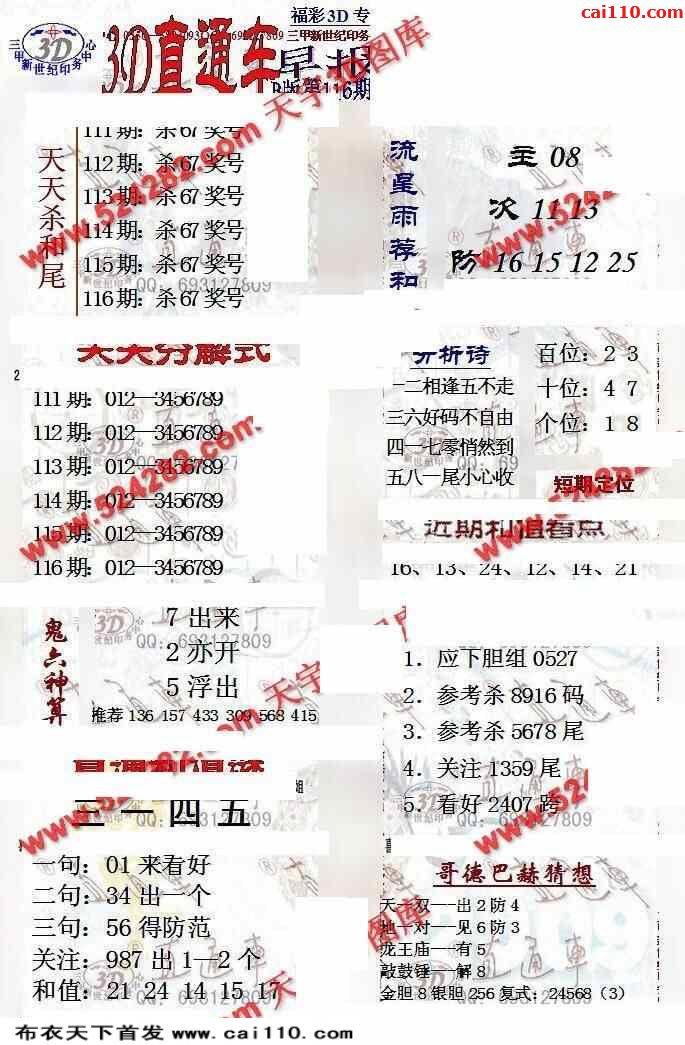 cai110.com
福彩3D专
三甲新世纪印务
三甲新世纪印务中心
3D
3D直通车
早报
B版第116期
天天杀和尾
111期: 杀67奖号
112期: 杀67奖号
113期: 杀67奖号
114期: 杀67奖号
115期: 杀67奖号
116期: 杀67奖号
QQ: 693127809
流星雨荐和
主 08
次 11 13
防 16 15 12 25
天天分解式
2
111期: 012—3456789
112期: 012—3456789
113期: 012—3456789
114期: 012—3456789
115期: 012—3456789
116期: 012—3456789
分析诗
一二相逢五不走
三六好码不自由
四一七零悄然到
五八一尾小心收
百位: 2 3
十位: 4 7
个位: 1 8
短期定位
近期和值看点
16、13、24、12、14、21
鬼六神算
7 出来
2 亦开
5 浮出
推荐 136 157 433 309 568 415
QQ: 693127809
1. 应下胆组 0527
2. 参考杀 8916 码
3. 参考杀 5678 尾
4. 关注 1359 尾
5. 看好 2407 跨
三 一 四 五
一句: 01 来看好
二句: 34 出一个
三句: 56 得防范
关注: 987 出 1—2 个
和值: 21 24 14 15 17
哥德巴赫猜想
天一双---出 2 防 4
地一对---见 6 防 3
龙王庙---有 5
敲鼓锤---解 8
金胆 8 银胆 256 复式: 24568（3）
www.524282.com 天宇3D图库
布衣天下首发 www.cai110.com